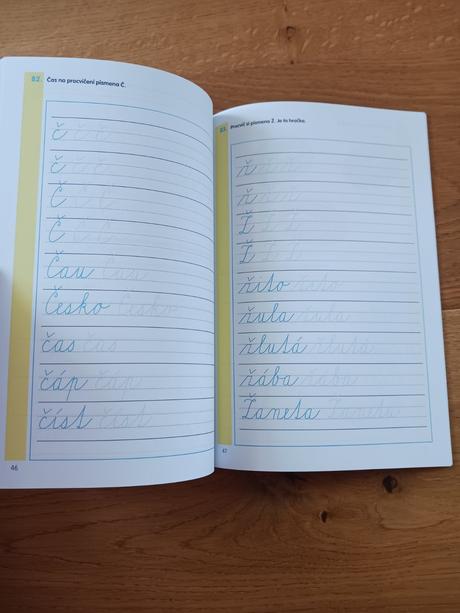 82. Čas na procvičení písmena Č.
č č č
č č č
Č Č Č
Č Č Č
Čau Čau
Česko Česko
čas čas
čáp čáp
číst číst
46
83. Procvič si písmeno Ž. Je to hračka.
ž ž ž
ž ž ž
Ž Ž Ž
Ž Ž Ž
žito žito
žula žula
žlutá žlutá
žába žába
Žaneta Žaneta
47